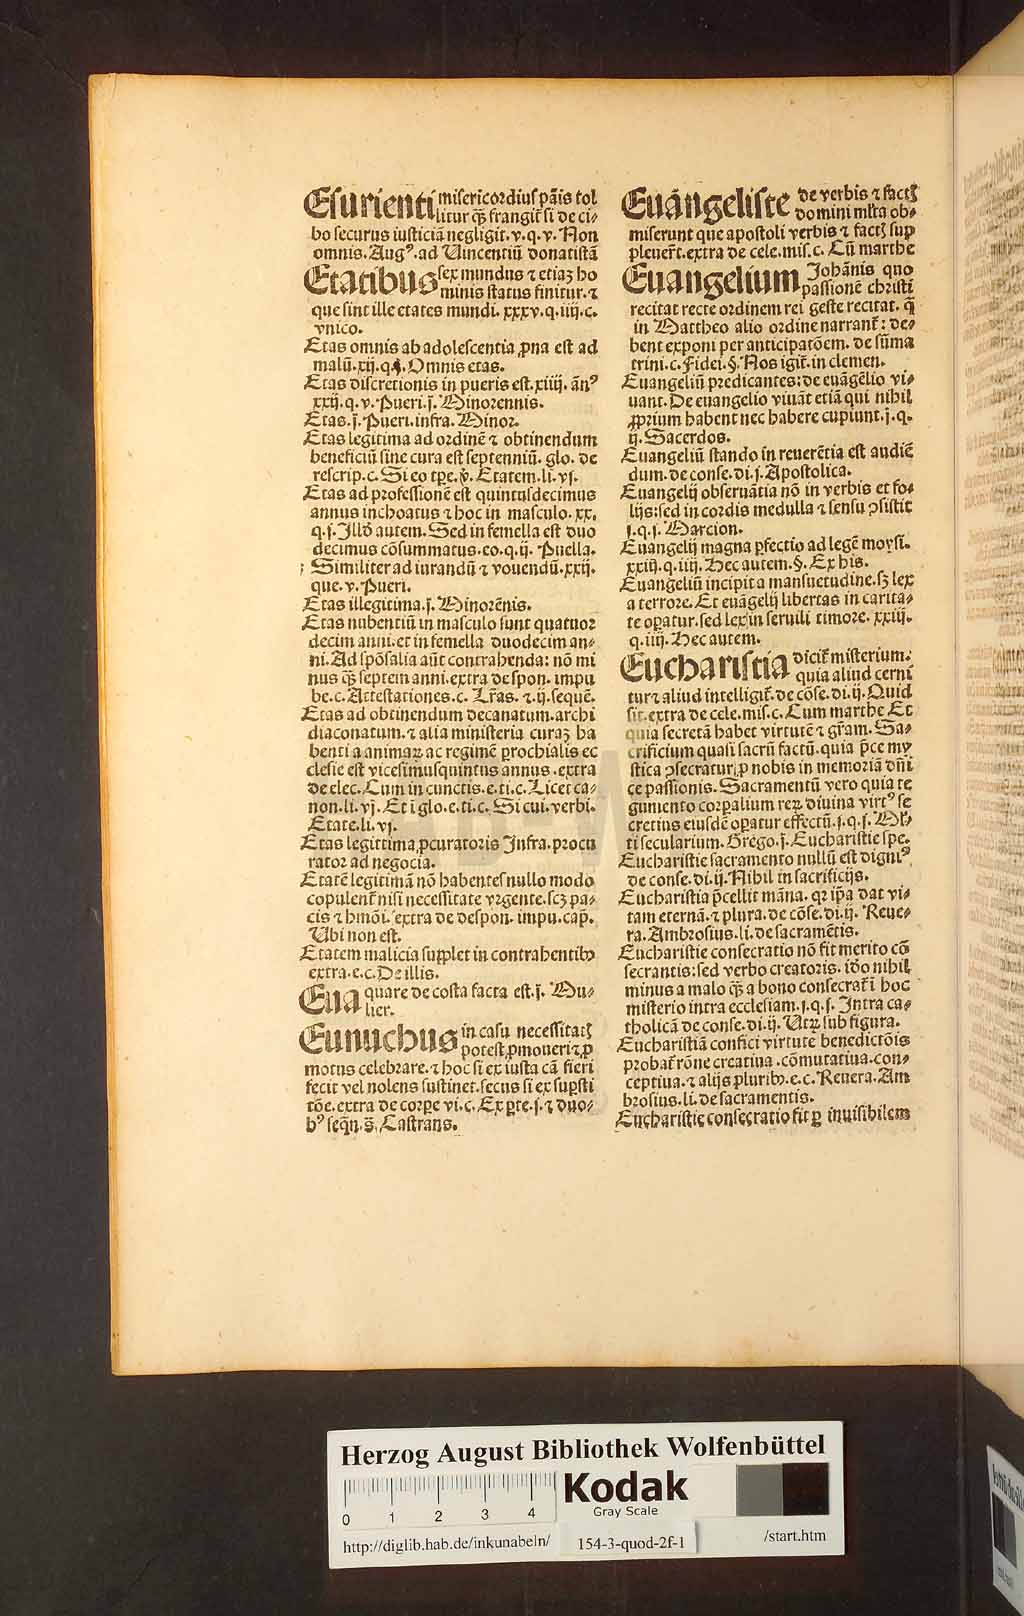 Esurienti misericordius pãis tol
litur qz frangit si de ci⸗
bo securus iusticiã negligit. v. q. v. Non
omnis. Augꝰ. ad Uincentiũ donatistã
Etatibus sex mundus ⁊ etiaz ho
minis status finitur. ⁊
que sint ille etates mundi. xxxv. q. iiij. c.
vnico.
Etas omnis ab adolescentia ꝓna est ad
malũ. xij. q. Omnis etas.
Etas discretionis in pueris est. xiiij. ãnꝰ
xxij. q. v. Pueri. j. Minorennis.
Etas. j. Pueri. infra. Minor.
Etas legitima ad ordinẽ ⁊ obtinendum
beneficiũ sine cura est septenniũ. glo. de
rescrip. c. Si eo tꝑe. Etatem. li. vj.
Etas ad professionẽ est quintusdecimus
annus inchoatus ⁊ hoc in masculo. xx.
q. j. Illđ autem. Sed in femella est duo
decimus cõsummatus. eo. q. ij. Puella.
Similiter ad iurandũ ⁊ vouendũ. xxij.
que. v. Pueri.
Etas illegitima. j. Minorẽnis.
Etas nubentiũ in masculo sunt quatuor
decim anni. et in femella duodecim an⸗
ni. Ad spõsalia aũt contrahenda: nõ mi
nus qz septem anni. extra de spon. impu
be. c. Attestationes. c. Lr̃as. ⁊. ij. sequẽ.
Etas ad obtinendum decanatum. archi
diaconatum. ⁊ alia ministeria curaz ha
benti a animaꝝ ac regimẽ ꝑrochialis ec
clesie est vicesimusquintus annus. extra
de elec. Cum in cunctis. e. ti. c. Licet ca⸗
non. li. vj. Et ĩ glo. e. ti. c. Si cui. verbi.
Etate. li. vj.
Etas legittima ꝓcuratoris Infra. procu
rator ad negocia.
Etatẽ legitimã nõ habentes nullo modo
copulent̃ nisi necessitate vrgente. scz pa⸗
cis ⁊ hmõi. extra de despon. impu. cap.
Ubi non est.
Etatem malicia supplet in contrahentibꝰ
extra. e. c. De illis.
Eua quare de costa facta est. j. Mu⸗
lier.
Eunuchus in casu necessitatꝭ
potest ꝓmoueri ⁊ ꝓ
motus celebrare. ⁊ hoc si ex iusta cã fieri
fecit vel nolens sustinet. secus si ex suꝑsti
tõe. extra de corꝑe vi. c. Ex ꝑte. j. ⁊ duo⸗
bꝰ seqñ. Castrans.
Euãngeliste de verbis ⁊ factꝭ
domini ml̃ta ob⸗
miserunt que apostoli verbis ⁊ factꝭ sup
pleuer̃t. extra de cele. mis. c. Cũ marthe
Euangelium Johãnis quo
passionẽ christi
recitat recte ordinem rei geste recitat. q̃
in Mattheo alio ordine narrant̃: de⸗
bent exponi per anticipatõem. de sũma
trini. c. Fidei. §. Nos igit̃. in clemen.
Euangeliũ predicantes: de euãgelio vi⸗
uant. De euangelio viuãt etiã qui nihil
ꝓprium habent nec habere cupiunt. j. q.
ij. Sacerdos.
Euangeliũ stando in reuerẽtia est audiẽ
dum. de conse. di. j. Apostolica.
Euangelij obseruãtia nõ in verbis et fo⸗
lijs: sed in cordis medulla ⁊ sensu ꝯsistit
j. q. j. Marcion.
Euangelij magna ꝑfectio ad legẽ moysi.
xxiij. q. iiij. Hec autem. §. Ex his.
Euangeliũ incipit a mansuetudine. sz lex
a terrore. Et euãgelij libertas in carita⸗
te oꝑatur. sed lex in seruili timore. xxiij.
q. iiij. Hec autem.
Eucharistia dicit̃ misterium.
quia aliud cerni
tur ⁊ aliud intelligit̃. de cõse. di. ij. Quid
sit. extra de cele. mis. c. Cum marthe Et
quia secretã habet virtutẽ ⁊ gr̃am. Sa⸗
crificium quasi sacrũ factũ. quia p̃ce my
stica ꝯsecratur ꝓ nobis in memoriã dñi
ce passionis. Sacramentũ vero quia te
gumento corꝑalium reꝝ diuina virtꝰ se
cretius eiusdẽ oꝑatur effectũ. j. q. j. Ml̃⸗
ti secularium. Grego. j. Eucharistie spe.
Eucharistie sacramento nullũ est digniꝰ
de conse. di. ij. Nihil in sacrificijs.
Eucharistia p̃cellit mãna. qr ip̃a dat vi⸗
tam eternã. ⁊ plura. de cõse. di. ij. Reue⸗
ra. Ambrosius. li. de sacramẽtis.
Eucharistie consecratio nõ fit merito cõ
secrantis: sed verbo creatoris. iđo nihil
minus a malo qz a bono consecrat̃ ĩ hoc
misterio intra ecclesiam. j. q. j. Intra ca⸗
tholicã de conse. di. ij. Utꝝ sub figura.
Eucharistiã confici virtute benedictõis
probat̃ rõne creatina. cõmutatiua. con⸗
ceptiua. ⁊ alijs pluribꝰ. e. c. Reuera. Am
brosius. li. de sacramentis.
Eucharistie consecratio fit ꝑ inuisibilem
Herzog August Bibliothek Wolfenbüttel
Kodak
Gray Scale
0 1 2 3 4
http://diglib.hab.de/inkunabeln/ 154-3-quod-2f-1 /start.htm